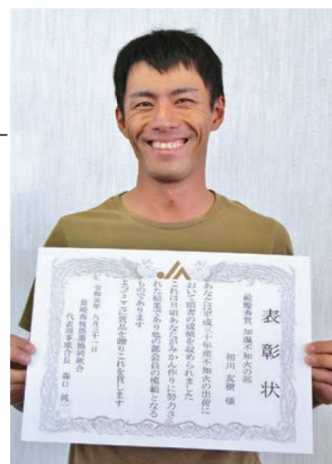 表彰状
最優秀賞 加温不知火の部
相川 友樹 様
あなたは平成三十年産不知火の出荷に
おいて頭書の成績を収められました
これは日頃あなたがみかん作りに努力さ
れた結果であり他の部会員の模範となる
ものであります
よってここに賞品を贈りこれを賞します
令和元年 八月三十一日
長崎西彼農業協同組合
代表理事組合長 森口 純一